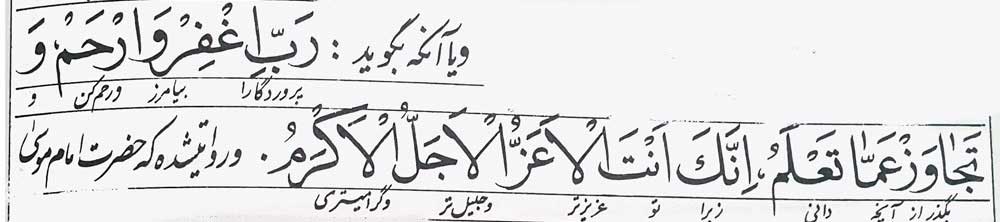 ویا آنکه بگوید : رَبِّ اغْفِرْ وَارْحَمْ، وَ
پروردگارا بیامرز ورحم کن و
تَجَاوَزْ عَمَّا تَعْلَمُ، اِنَّكَ اَنْتَ الْاَعَزُّ الْاَجَلُّ الْاَكْرَمُ. وروایتشده که حضرت امام موسیٰ
بگذر از آنچه دانی زیرا تو عزیزتر وجلیل‌تر وگرامیتری